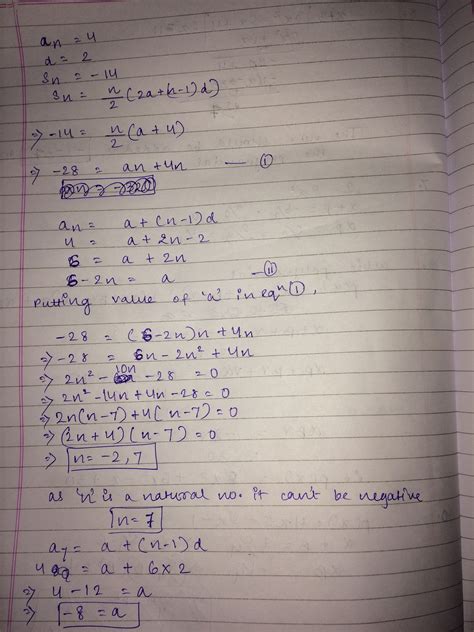 an = 4
d = 2
Sn = -14
Sn = n/2 (2a+(n-1)d)
⇒ -14 = n/2 (a + 4)
⇒ -28 = an + 4n — (i)
an = a + (n-1)d
4 = a + 2n - 2
6 = a + 2n
6 - 2n = a — (ii)
Putting value of 'a' in eqn (i),
-28 = (6-2n)n + 4n
⇒ -28 = 6n - 2n² + 4n
⇒ 2n² - 10n - 28 = 0
⇒ 2n² - 14n + 4n - 28 = 0
⇒ 2n(n-7) + 4(n-7) = 0
⇒ (2n+4)(n-7) = 0
⇒ n = -2, 7
as 'n' is a natural no. it can't be negative
n = 7
a7 = a + (n-1)d
4 = a + 6×2
⇒ 4 - 12 = a
⇒ -8 = a